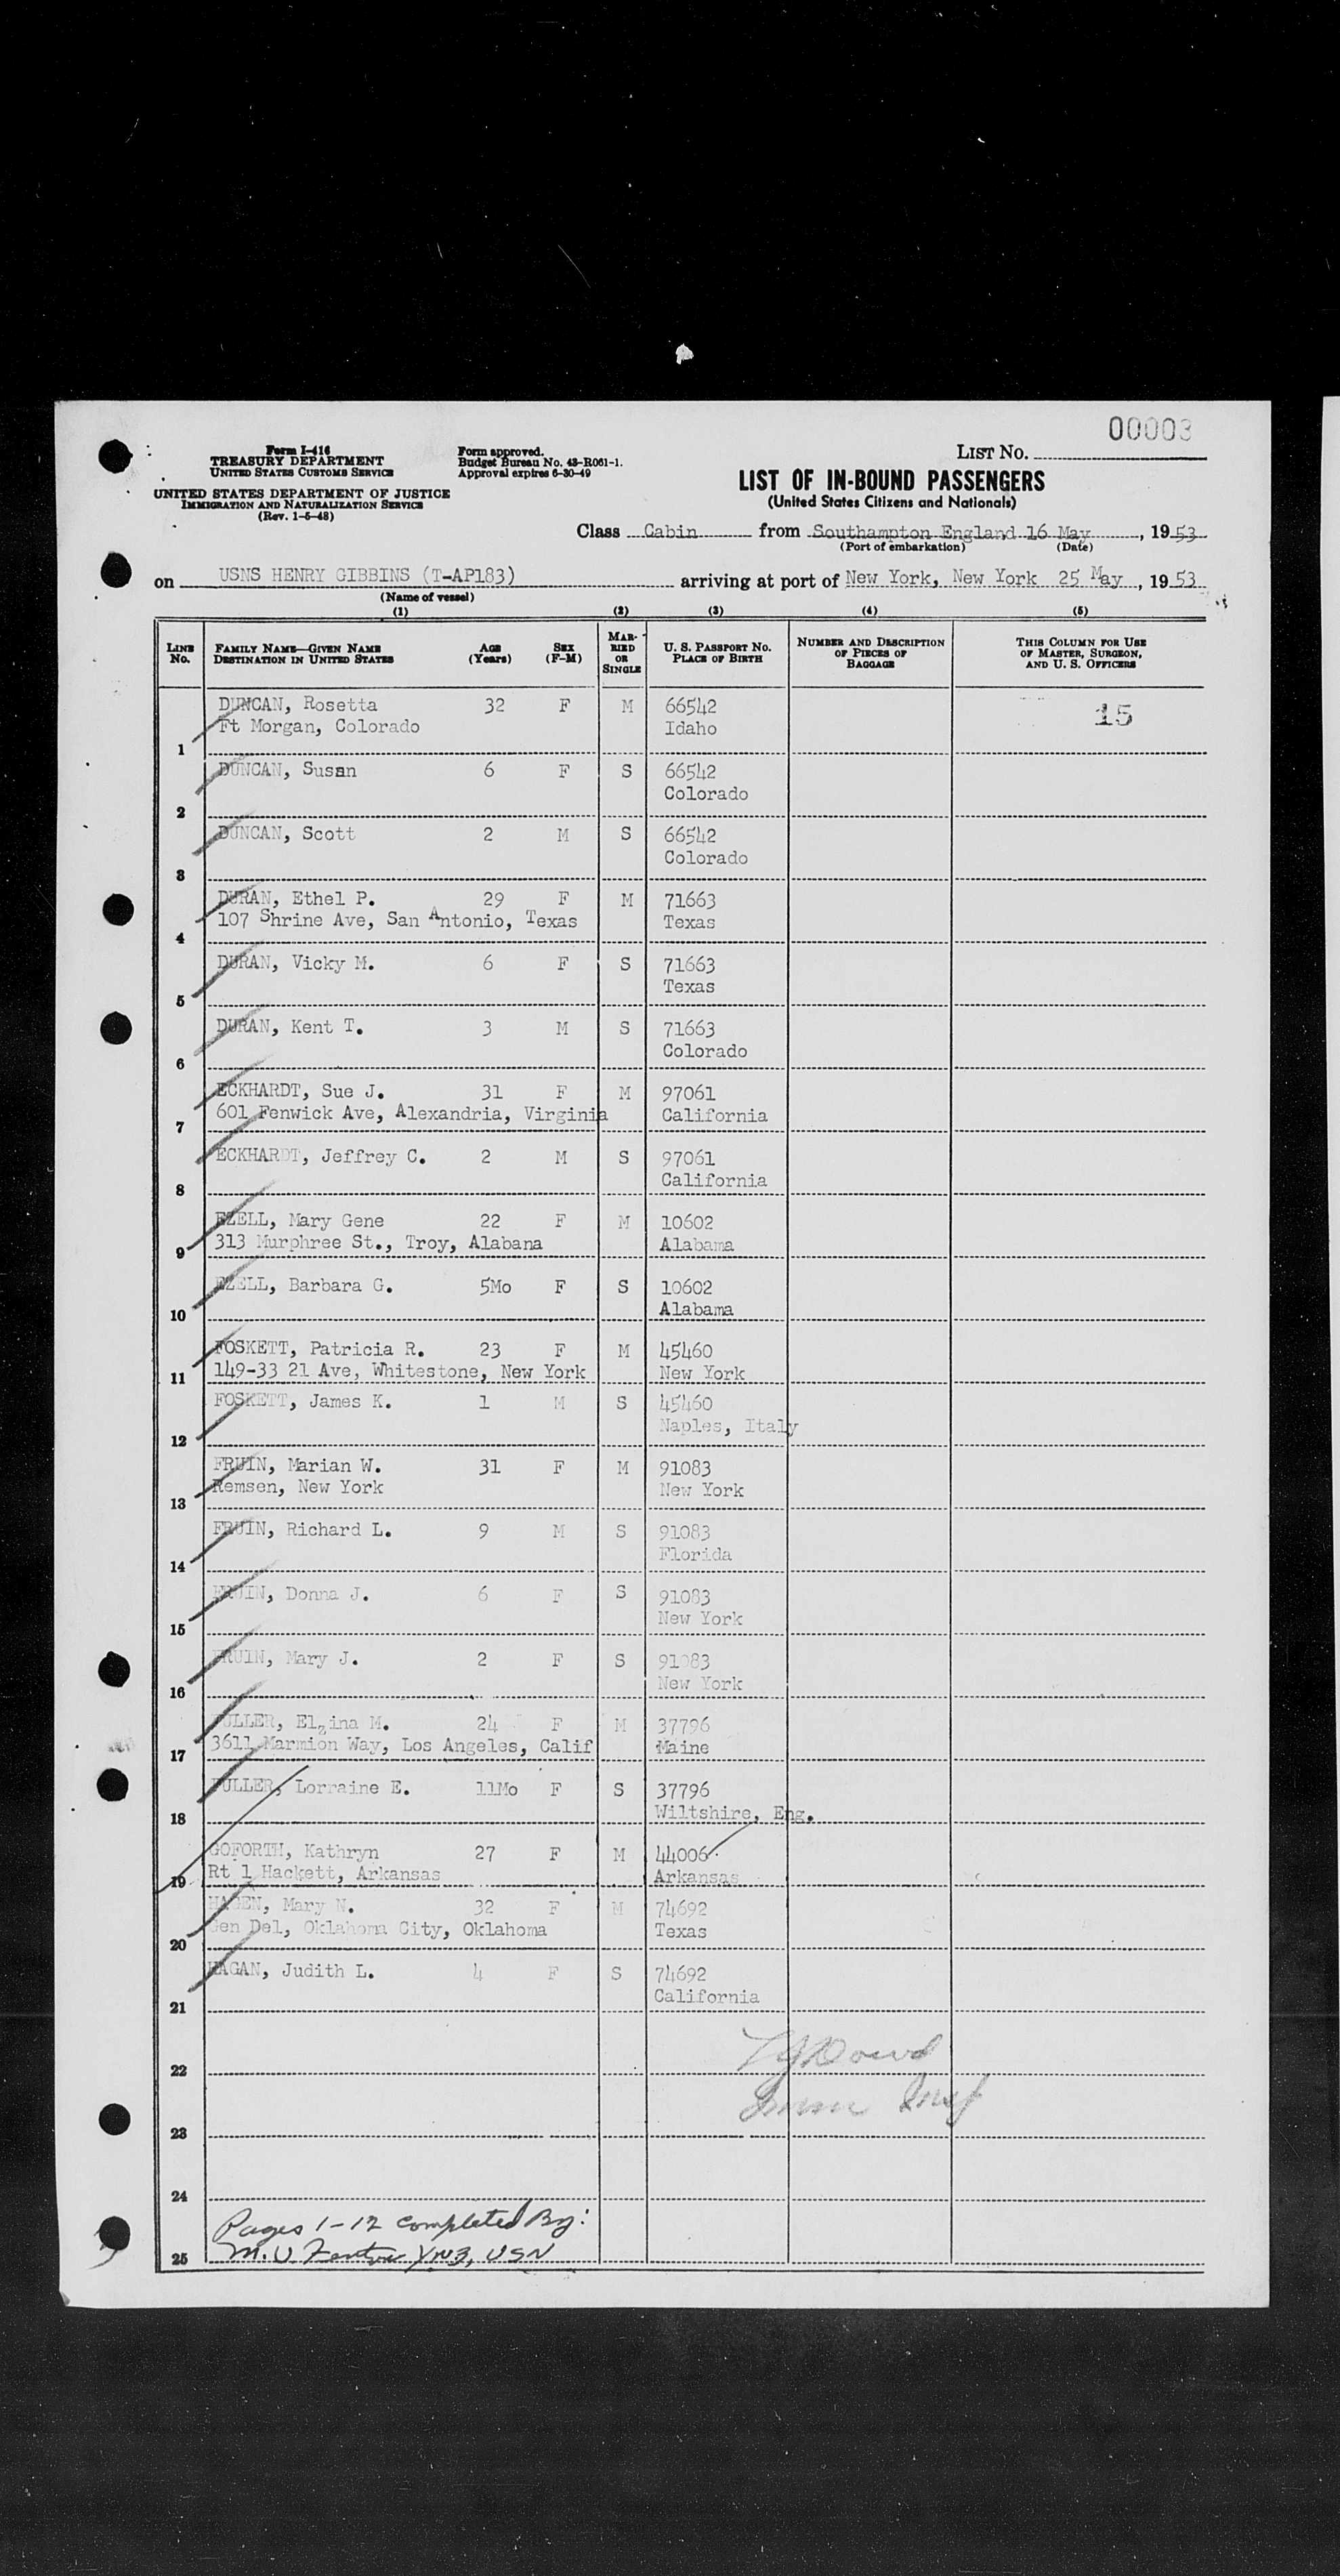 00003
Form I-416
TREASURY DEPARTMENT
UNITED STATES CUSTOMS SERVICE
UNITED STATES DEPARTMENT OF JUSTICE
IMMIGRATION AND NATURALIZATION SERVICE
(Rev. 1-5-48)
Form approved.
Budget Bureau No. 43-R061-1.
Approval expires 6-30-49
LIST NO.
LIST OF IN-BOUND PASSENGERS
(United States Citizens and Nationals)
Class Cabin from Southampton England 16 May, 1953
(Port of embarkation) (Date)
on USNS HENRY GIBBINS (T-AP183) arriving at port of New York, New York 25 May, 1953
(Name of vessel)
(1) (2) (3) (4) (5)
LINE NO. FAMILY NAME—GIVEN NAME DESTINATION IN UNITED STATES AGE (Years) SEX (F-M) MARRIED OR SINGLE U. S. PASSPORT NO. PLACE OF BIRTH NUMBER AND DESCRIPTION OF PIECES OF BAGGAGE THIS COLUMN FOR USE OF MASTER, SURGEON, AND U. S. OFFICERS
DUNCAN, Rosetta 32 F M 66542 15
Ft Morgan, Colorado Idaho
1
DUNCAN, Susan 6 F S 66542
Colorado
2
DUNCAN, Scott 2 M S 66542
Colorado
3
DURAN, Ethel P. 29 F M 71663
107 Shrine Ave, San Antonio, Texas Texas
4
DURAN, Vicky M. 6 F S 71663
Texas
5
DURAN, Kent T. 3 M S 71663
Colorado
6
ECKHARDT, Sue J. 31 F M 97061
601 Fenwick Ave, Alexandria, Virginia California
7
ECKHARDT, Jeffrey C. 2 M S 97061
California
8
EZELL, Mary Gene 22 F M 10602
313 Murphree St., Troy, Alabana Alabama
9
EZELL, Barbara G. 5Mo F S 10602
Alabama
10
FOSKETT, Patricia R. 23 F M 45460
149-33 21 Ave, Whitestone, New York New York
11
FOSKETT, James K. 1 M S 45460
Naples, Italy
12
FRUIN, Marian W. 31 F M 91083
Remsen, New York New York
13
FRUIN, Richard L. 9 M S 91083
Florida
14
FRUIN, Donna J. 6 F S 91083
New York
15
FRUIN, Mary J. 2 F S 91083
New York
16
FULLER, Elzina M. 24 F M 37796
3611 Marmion Way, Los Angeles, Calif Maine
17
FULLER, Lorraine E. 11Mo F S 37796
Wiltshire, Eng.
18
GOFORTH, Kathryn 27 F M 44006
Rt 1 Hackett, Arkansas Arkansas
19
HAGEN, Mary N. 32 F M 74692
Gen Del, Oklahoma City, Oklahoma Texas
20
HAGAN, Judith L. 4 F S 74692
California
21
22
23
24
Pages 1-12 completed By:
25 M. U YN3, USN